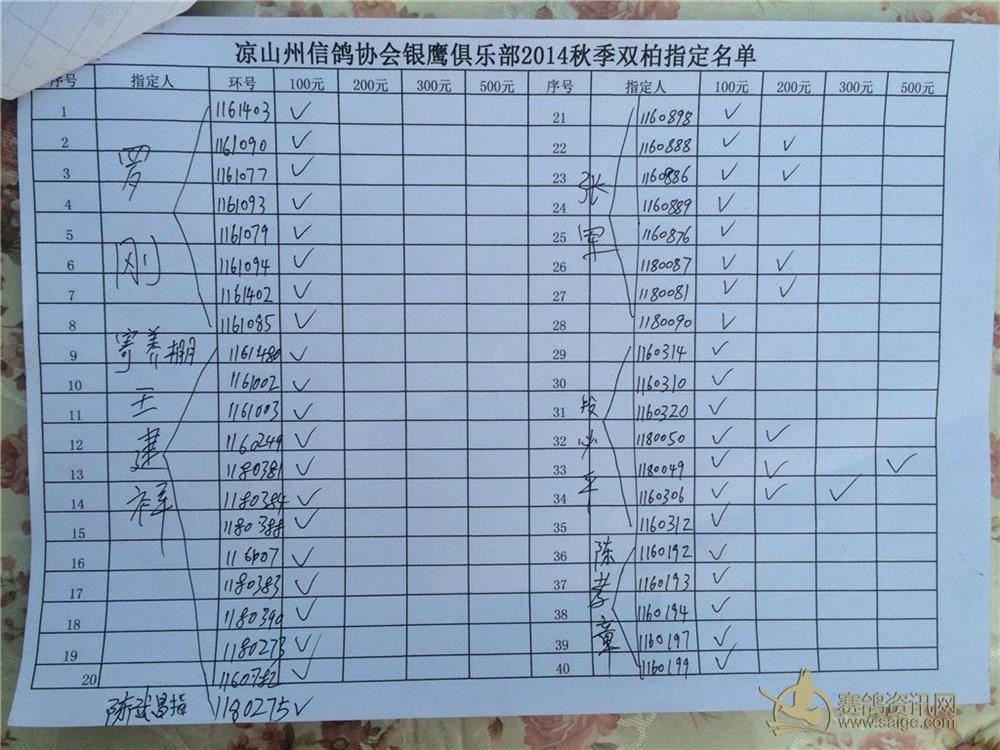 凉山州信鸽协会银鹰俱乐部2014秋季双柏指定名单
序号 指定人 环号 100元 200元 300元 500元 序号 指定人 100元 200元 300元 500元
1 1161403 ✓ 21 1160898 ✓
2 1161090 ✓ 22 1160888 ✓ ✓
3 罗 1161077 ✓ 23 张 1160886 ✓ ✓
4 1161093 ✓ 24 1160889 ✓
5 刚 1161079 ✓ 25 军 1160876 ✓
6 1161094 ✓ 26 1180087 ✓ ✓
7 1161402 ✓ 27 1180081 ✓ ✓
8 1161085 ✓ 28 1180090 ✓
9 寄养棚 1161480 ✓ 29 1160314 ✓
10 王 1161002 ✓ 30 1160310 ✓
11 1161003 ✓ 31 段 1160320 ✓
12 建 1160249 ✓ 32 1180050 ✓ ✓
13 1180381 ✓ 33 1180049 ✓ ✓ ✓
14 祥 1180384 ✓ 34 平 1160306 ✓ ✓ ✓
15 1180388 ✓ 35 1160312 ✓
16 ✓ 36 陈 1160192 ✓
17 1180383 ✓ 37 孝 1160193 ✓
18 1180390 ✓ 38 章 1160194 ✓
19 1180273 ✓ 39 1160197 ✓
20 1160782 ✓ 40 1160199 ✓
陈 昌指 1180275 ✓
赛鸽资讯网
www.saige.com